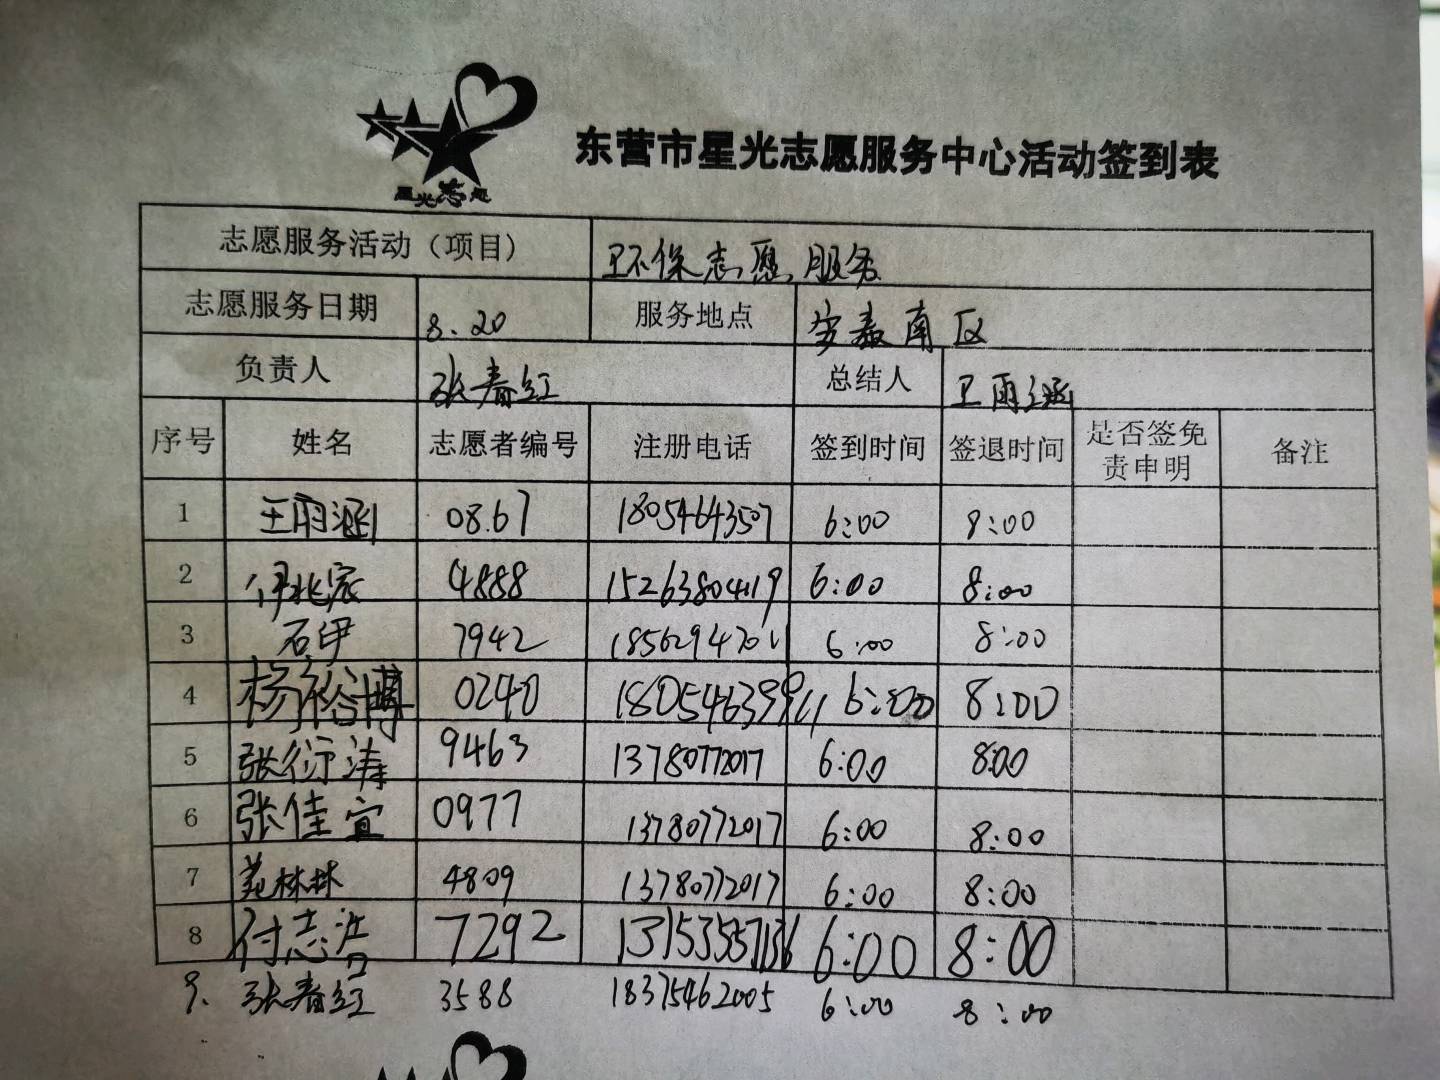 星光志愿
东营市星光志愿服务中心活动签到表
志愿服务活动（项目） 环保志愿服务
志愿服务日期 8.20 服务地点 安泰南区
负责人 张春红 总结人 王雨涵
序号 姓名 志愿者编号 注册电话 签到时间 签退时间 是否签免责申明 备注
1 王雨涵 08.67 18054643507 6:00 8:00
2 伊兆宸 4888 15263804419 6:00 8:00
3 石伊 7942 6:00 8:00
4 杨裕博 0240 6:00 8:00
5 张衍涛 9463 13780772017 6:00 8:00
6 张佳宜 0977 13780772017 6:00 8:00
7 苑林林 4809 13780772017 6:00 8:00
8 付志浩 7292 6:00 8:00
9. 张春红 3588 18375462005 6:00 8:00